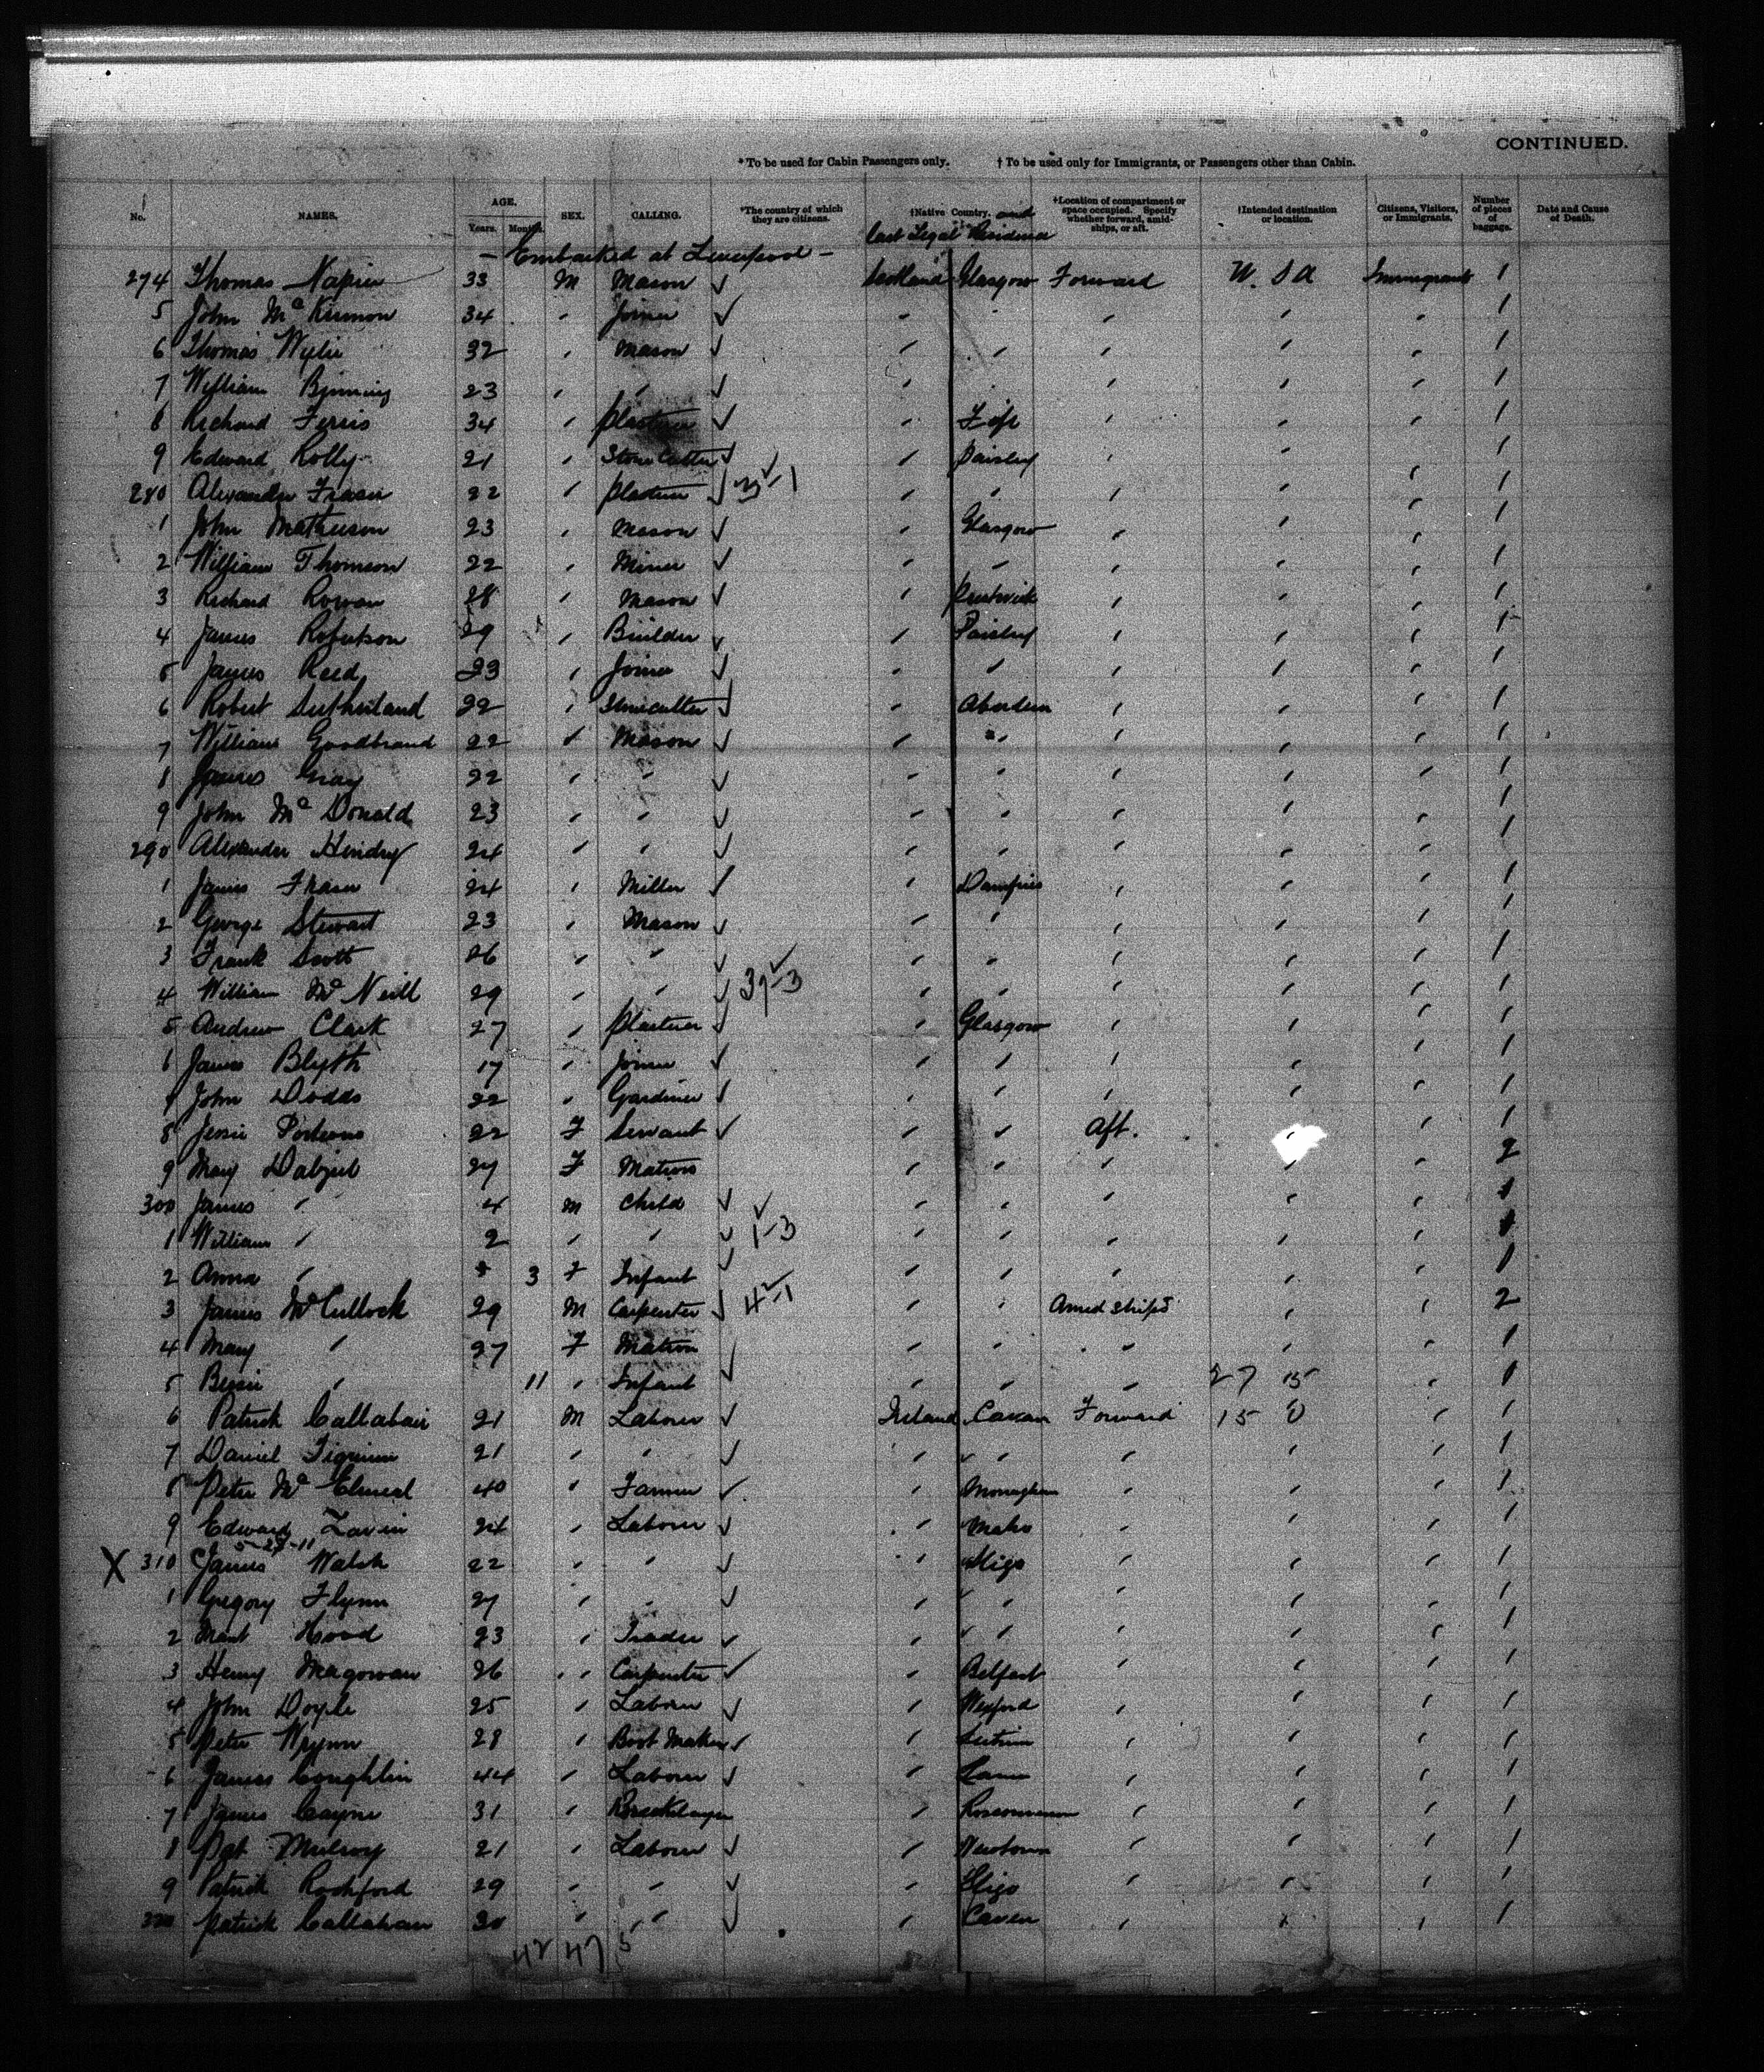 CONTINUED.
*To be used for Cabin Passengers only. † To be used only for Immigrants, or Passengers other than Cabin.
No. NAMES. AGE. Years. Months. SEX. CALLING. *The country of which they are citizens. †Native Country. and last Legal Residence †Location of compartment or space occupied. Specify whether forward, amidships, or aft. †Intended destination or location. Citizens, Visitors, or Immigrants. Number of pieces of baggage. Date and Cause of Death.
- Embarked at Liverpool -
274 Thomas Napier 33 M Mason ✓ Scotland Glasgow Forward U.S.A Immigrants 1
5 John Mc Kinnon 34 " Joiner ✓ " " " " " 1
6 Thomas Wylie 32 " Mason ✓ " " " " " 1
7 William Binning 23 " " ✓ " " " " " 1
8 Richard Ferris 34 " Plasterer ✓ " Fife " " " 1
9 Edward Rolly 21 " Stone Cutter ✓ " Paisley " " " 1
280 Alexander Fraser 22 " Plasterer ✓ " " " " " 1
1 John Mathieson 23 " Mason ✓ " Glasgow " " " 1
2 William Thomson 22 " Miner ✓ " " " " " 1
3 Richard Rowan 28 " Mason ✓ " Prestwick " " " 1
4 James Robertson 29 " Builder ✓ " Paisley " " " 1
5 James Reed 23 " Joiner ✓ " " " " " 1
6 Robert Sutherland 22 " Stonecutter ✓ " Aberdeen " " " 1
7 William Goodbrand 22 " Mason ✓ " " " " " 1
8 James Gray 22 " " ✓ " " " " " 1
9 John Mc Donald 23 " " ✓ " " " " " 1
290 Alexander Hendry 24 " " ✓ " " " " " 1
1 James Fraser 24 " Miller ✓ " Dumfries " " " 1
2 George Stewart 23 " Mason ✓ " " " " " 1
3 Frank Scott 26 " " ✓ " " " " " 1
4 William Mc Neill 29 " " ✓ " " " " " 1
5 Andrew Clark 27 " Plasterer ✓ " Glasgow " " " 1
6 James Blyth 17 " Joiner ✓ " " " " " 1
7 John Dodds 22 " Gardiner ✓ " " " " " 1
8 Jessie Porteous 22 F Servant ✓ " " Aft. " " 1
9 Mary Dalziel 27 F Matron " " " " " 2
300 James " 4 M Child ✓ " " " " " 1
1 William " 2 " " ✓ 1-3 " " " " " 1
2 Anna " 3 F Infant ✓ " " " " " 1
3 James Mc Cullock 29 M Carpenter ✓ " " Amidships " " 2
4 Mary " 27 F Matron " " " " " 1
5 Bessie " 11 " Infant ✓ " " " 27 15 " 1
6 Patrick Callahan 21 M Laborer ✓ Ireland Cavan Forward 15 0 " 1
7 Daniel 21 " " ✓ " " " " " 1
8 Peter Mc 40 " Farmer ✓ " Monaghan " " " 1
9 Edward Lavin 24 " Laborer ✓ " " " " 1
5-27-11
X 310 James Walsh 22 " " ✓ " Sligo " " " 1
1 Gregory Flynn 27 " " ✓ " " " " " 1
2 Hood 23 " Trader ✓ " " " " " 1
3 Henry Magowan 26 " Carpenter ✓ " Belfast " " " 1
4 John Doyle 25 " Laborer ✓ " Wexford " " " 1
5 Peter Wynn 28 " Boot Maker ✓ " Leitrim " " " 1
6 James Coughlin 44 " Laborer ✓ " " " " 1
7 James Coyne 31 " " Roscommon " " " 1
8 Pat Mulroy 21 " Laborer ✓ " Newtown " " " 1
9 Patrick Rochford 29 " " ✓ " Sligo " " " 1
320 Patrick Callahan 30 " " ✓ " Cavan " " " 1
42 47 5